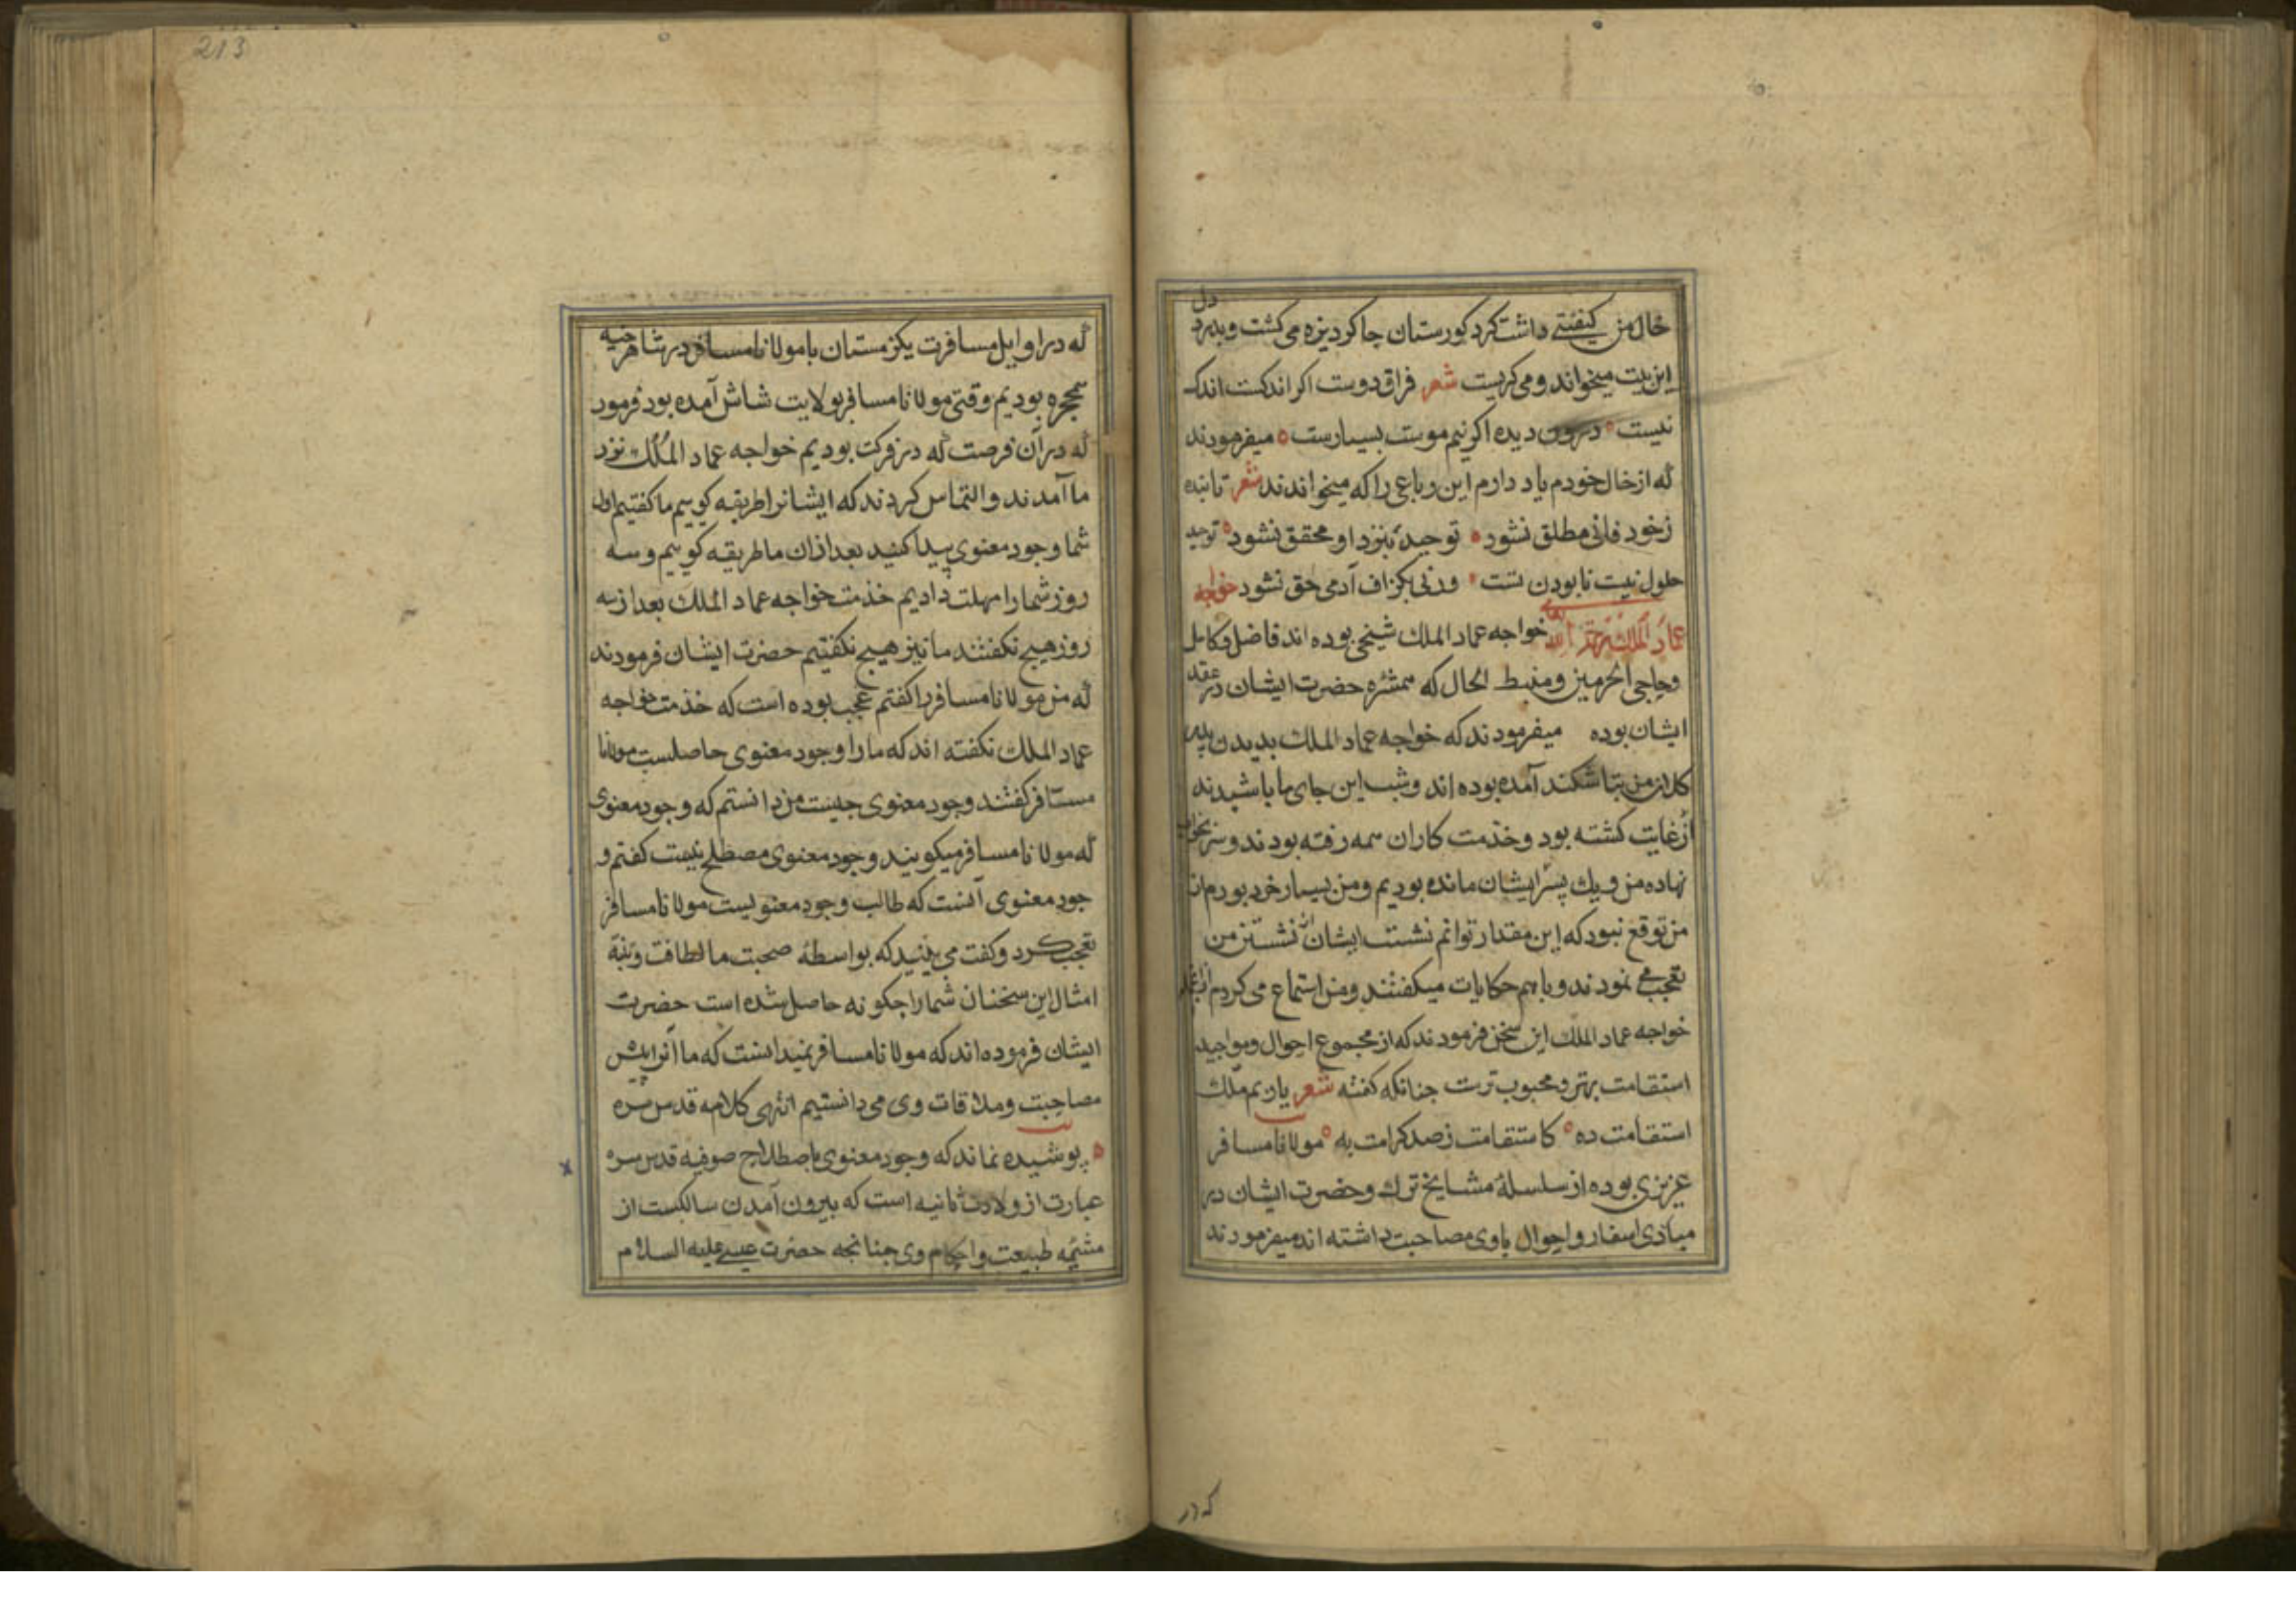 خال من کیفیتی داشت کرد کورستان جا کردیزه می کشت وبدرد دل
این بیت میخواند ومی کریست شعر فراق دوست اکر اندکست اندک
نیست درون دیده اکر نیم موست بسیارست میفرمودند
که از خال خودم یاد دارم این رباعی را که میخواندند شعر تا بنده
زخود فانی مطلق نشود توحید بنزد او محقق نشود توحید
حلول نیست نابودن تست ورنی بکزاف آدمی حق نشود خواجه
عماد الملک الله تعالی خواجه عماد الملک شیخی بوده اند فاضل وکامل
وحاجی الحرمین ومنبط الحال که همشره حضرت ایشان در عقد
ایشان بوده میفرمودند که خواجه عماد الملک بدیدن پدر
کلان من بتاشکند آمده بوده اند وشب این جای ما باشیدند
از غایت کشته بود وخدمت کاران همه رفته بودند وسر
نهاده من ویک پسر ایشان مانده بودیم ومن بسیار خرد بودم از
من توقع نبود که این مقدار توانم نشست ایشان از نشستن من
تعجب می نمودند وباهم حکایات میکفتند ومن استماع می کردم
خواجه عماد الملک این سخن فرمودند که از مجموع احوال ومواجید
استقامت بهتر ومحبوب ترست جنانکه کفته شعر یاربم ملک
استقامت ده کاستقامت زصد کرامت به مولانا مسافر
عزیزی بوده از سلسله مشایخ ترک وحضرت ایشان در
مبادی اسفار واحوال باوی مصاحبت داشته اند میفرمودند
که در
213
که در اوایل مسافرت یک زمستان با مولانا مسافر در شاهرخیه
همحجره بودیم وقتی مولانا مسافر بولایت شاش آمده بود فرمود
که در آن فرصت که در فرکت بودیم خواجه عماد الملک نزد
ما آمدند والتماس کردند که ایشانرا طریقه کوییم ما کفتیم اول
شما وجود معنوی پیدا کنید بعد از ان ما طریقه کوییم وسه
روز شما را مهلت دادیم خدمت خواجه عماد الملک بعد از سه
روز هیچ نکفتند ما نیز هیچ نکفتیم حضرت ایشان فرمودند
که من مولانا مسافر را کفتم عجب بوده است که خدمت خواجه
عماد الملک نکفته اند که ما را وجود معنوی حاصلست مولانا
مسافر کفتند وجود معنوی جیست من دانستم که وجود معنوی
که مولانا مسافر میکویند وجود معنوی مصطلح نیست کفتم و
جود معنوی آنست که طالب وجود معنویست مولانا مسافر
تعجب کرد وکفت می بینید که بواسطه صحبت ما لطافت وتنبه
امثال این سخنان شما را جکونه حاصل شده است حضرت
ایشان فرموده اند که مولانا مسافر نمیدانست که ما آنرا پیش
مصاحبت وملاقات وی می دانستیم انتهی کلامه قدس سره
پوشیده نماند که وجود معنوی باصطلاح صوفیه قدس سره
عبارت از ولادت ثانیه است که بیرون آمدن سالکست از
مشیمه طبیعت واحکام وی جنانجه حضرت عیسی علیه السلام